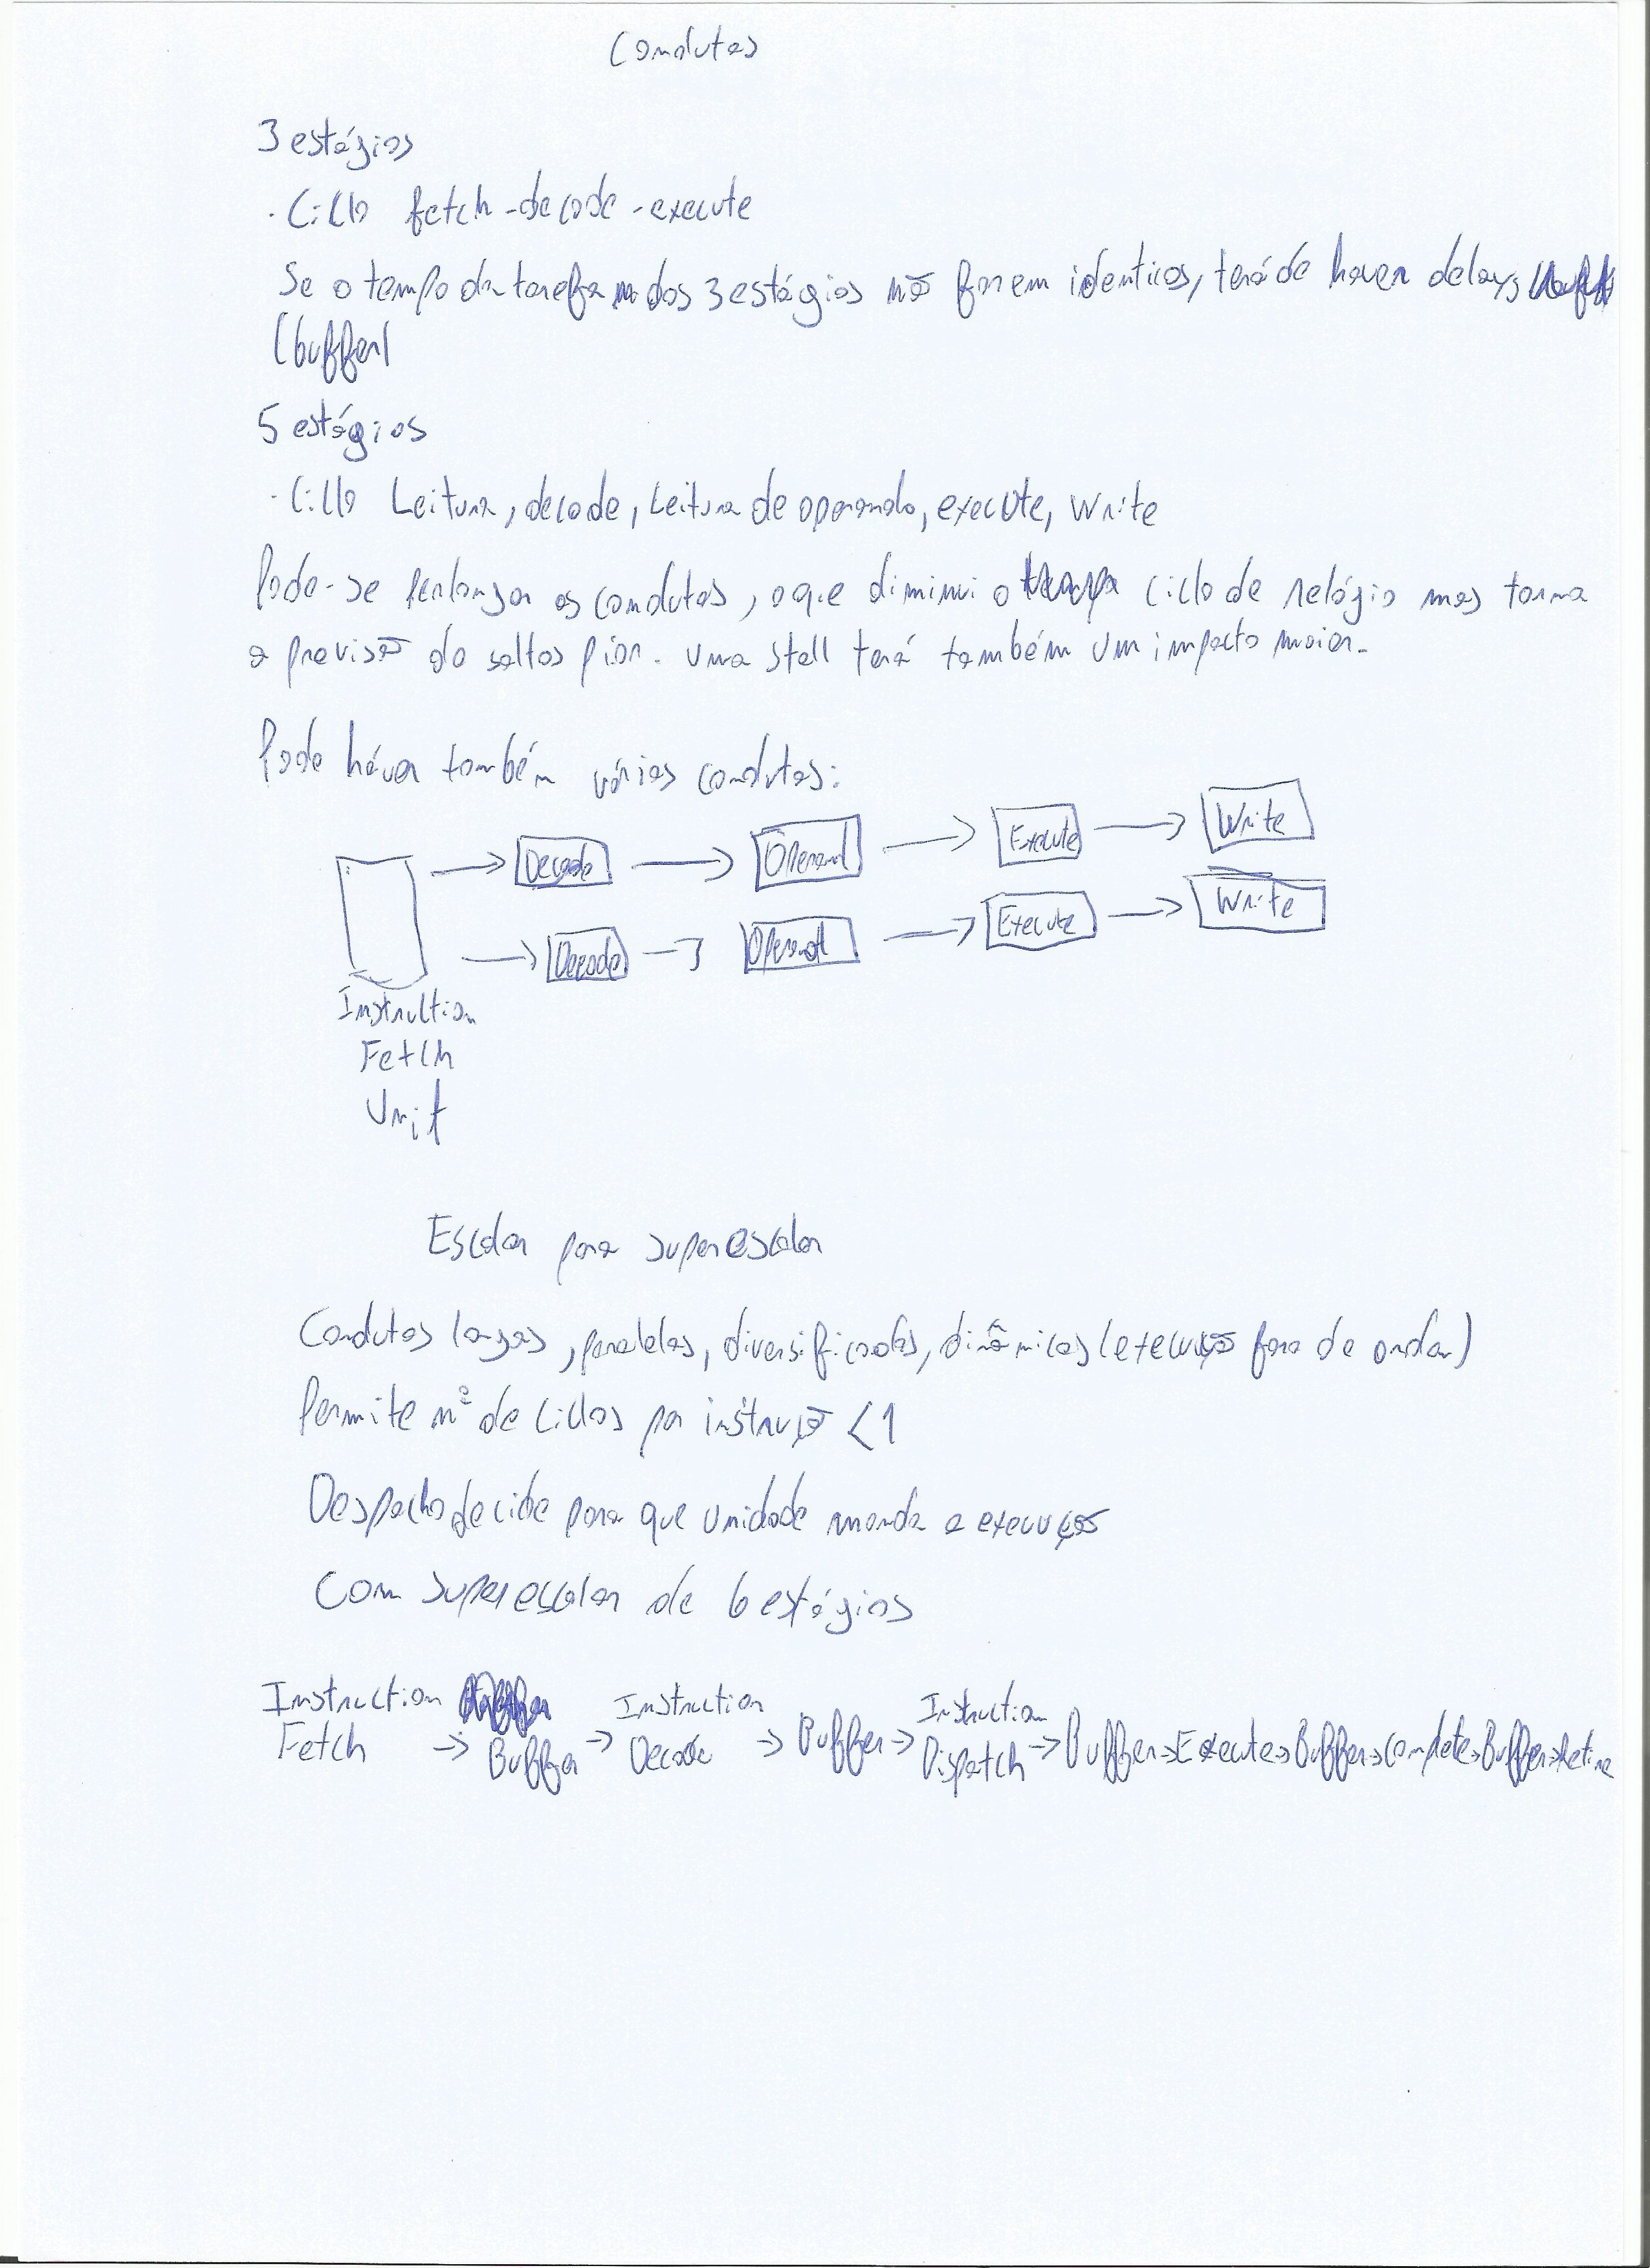 Condutas
3 estágios
· Ciclo fetch-decode-execute
Se o tempo da tarefa dos 3 estágios não forem identicos, terá de haver delays
(buffer)
5 estágios
· Ciclo Leitura, decode, Leitura de operando, execute, write
Pode-se prolongar as condutas, o que diminui o ciclo de relógio mas torna
a previsão do saltos pior. Uma stall terá também um impacto maior.
Pode háver também várias condutas:
Decode → Operand → Execute → Write
Decode → Operand → Execute → Write
Instruction
Fetch
Unit
Escalar para superescalar
Condutas largas, paralelas, diversificadas, dinâmicas (execução fora de ordem)
Permite nº de ciclos por instrução <1
Despacho decide para que unidade manda a execução
Com superescalar de 6 estágios
Instruction Instruction Instruction
Fetch → Buffer → Decode → Buffer → Dispatch → Buffer → Execute → Buffer → Complete → Buffer → Retire